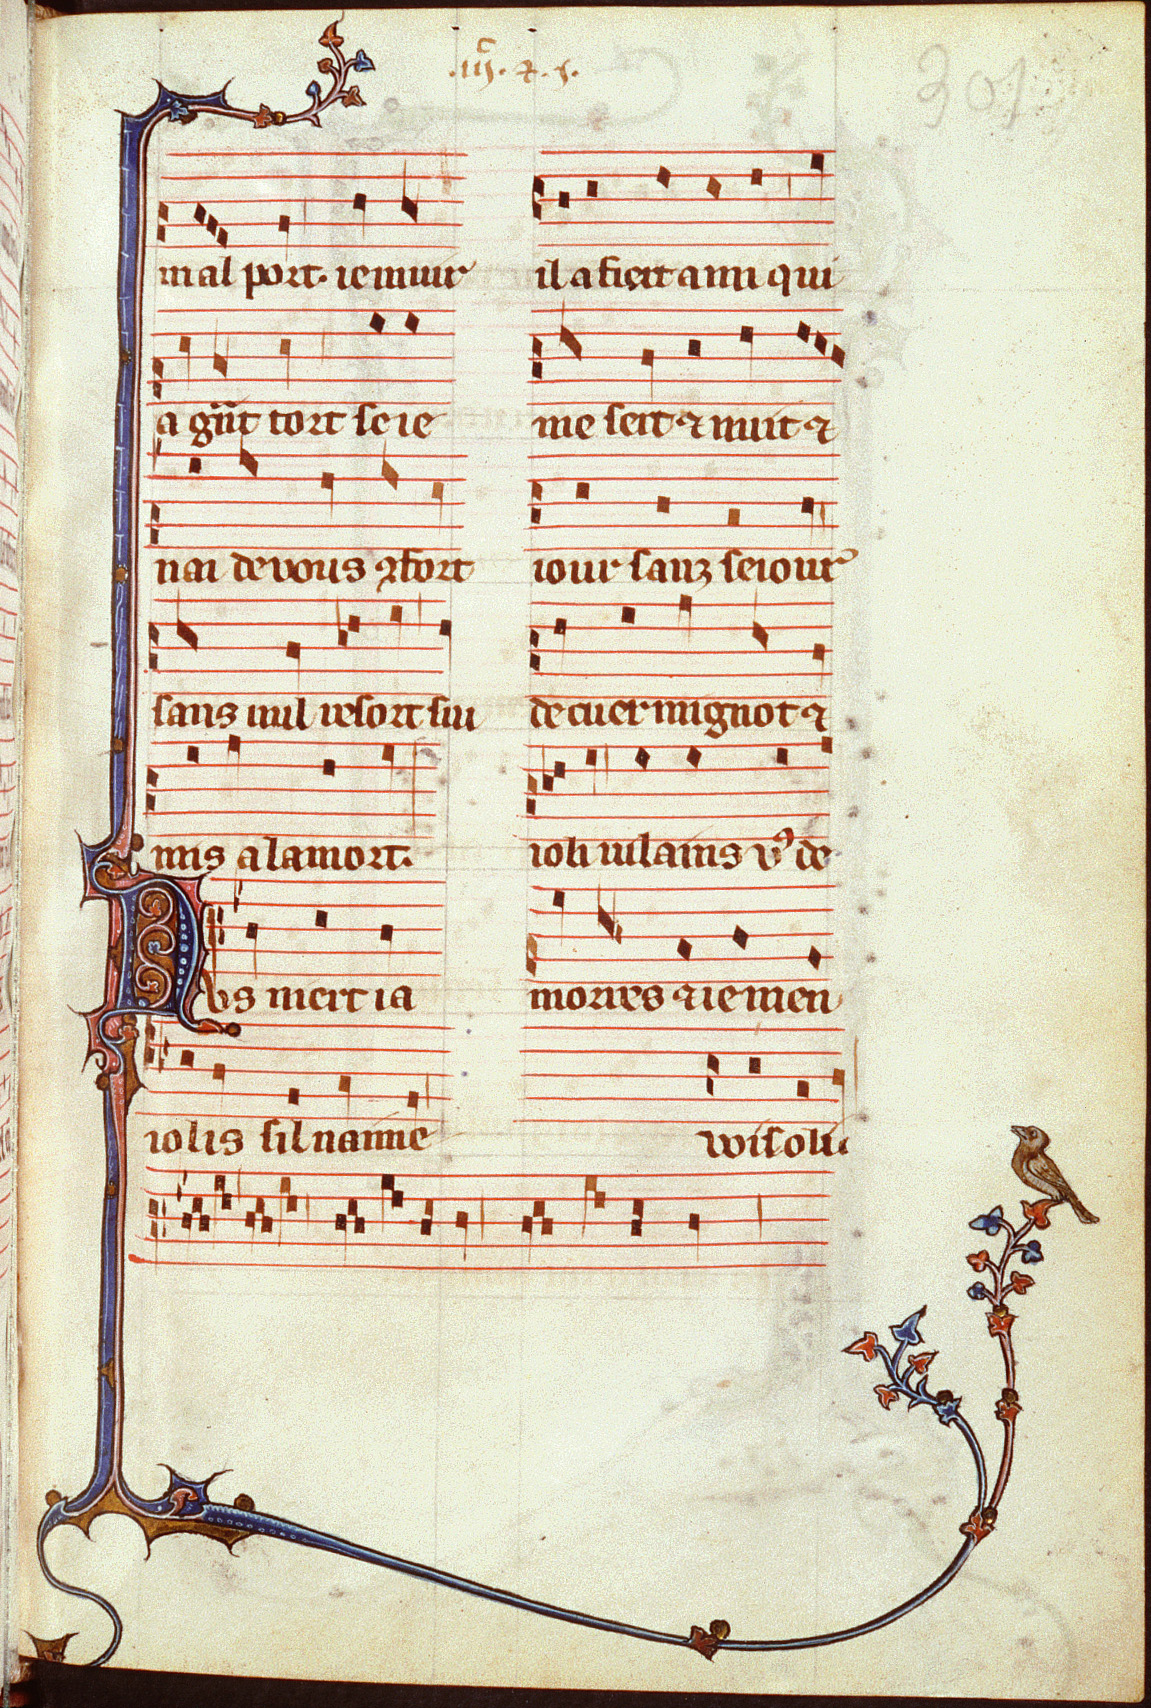 .iiȷ. ⁊ .v.
301
mal port. ie muir
a gn̄t tort se ie
nai de vous ꝯfort
sans nul resort sui
mis a la mort.
us mert ia
iolis sil naime
il a fiert a mi qui
me fert ⁊ nuit ⁊
iour sanz seiour
de cuer mignot ⁊
ioli vilains v9 de
morres ⁊ ie men